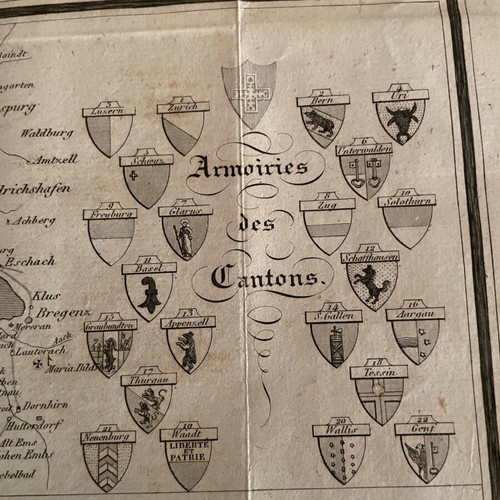 Waldburg
Amtzell
Achberg
Eschach
Klus
Bregenz
Lauterach
Dornhirn
Hutterdorf
Alt Ems
Armoiries
des
Cantons.
3
Luzern
1
Zurich
2
Bern
4
Uri
5
Schwyz
6
Unterwalden
9
Freyburg
7
Glarus
8
Zug
10
Solothurn
11
Basel
12
Schaffhausen
15
Graubundten
13
Appenzell
14
S. Gallen
16
Aargau
17
Thurgau
18
Tessin
21
Neuenburg
19
Waadt
LIBERTÉ
ET
PATRIE
20
Wallis
22
Genf